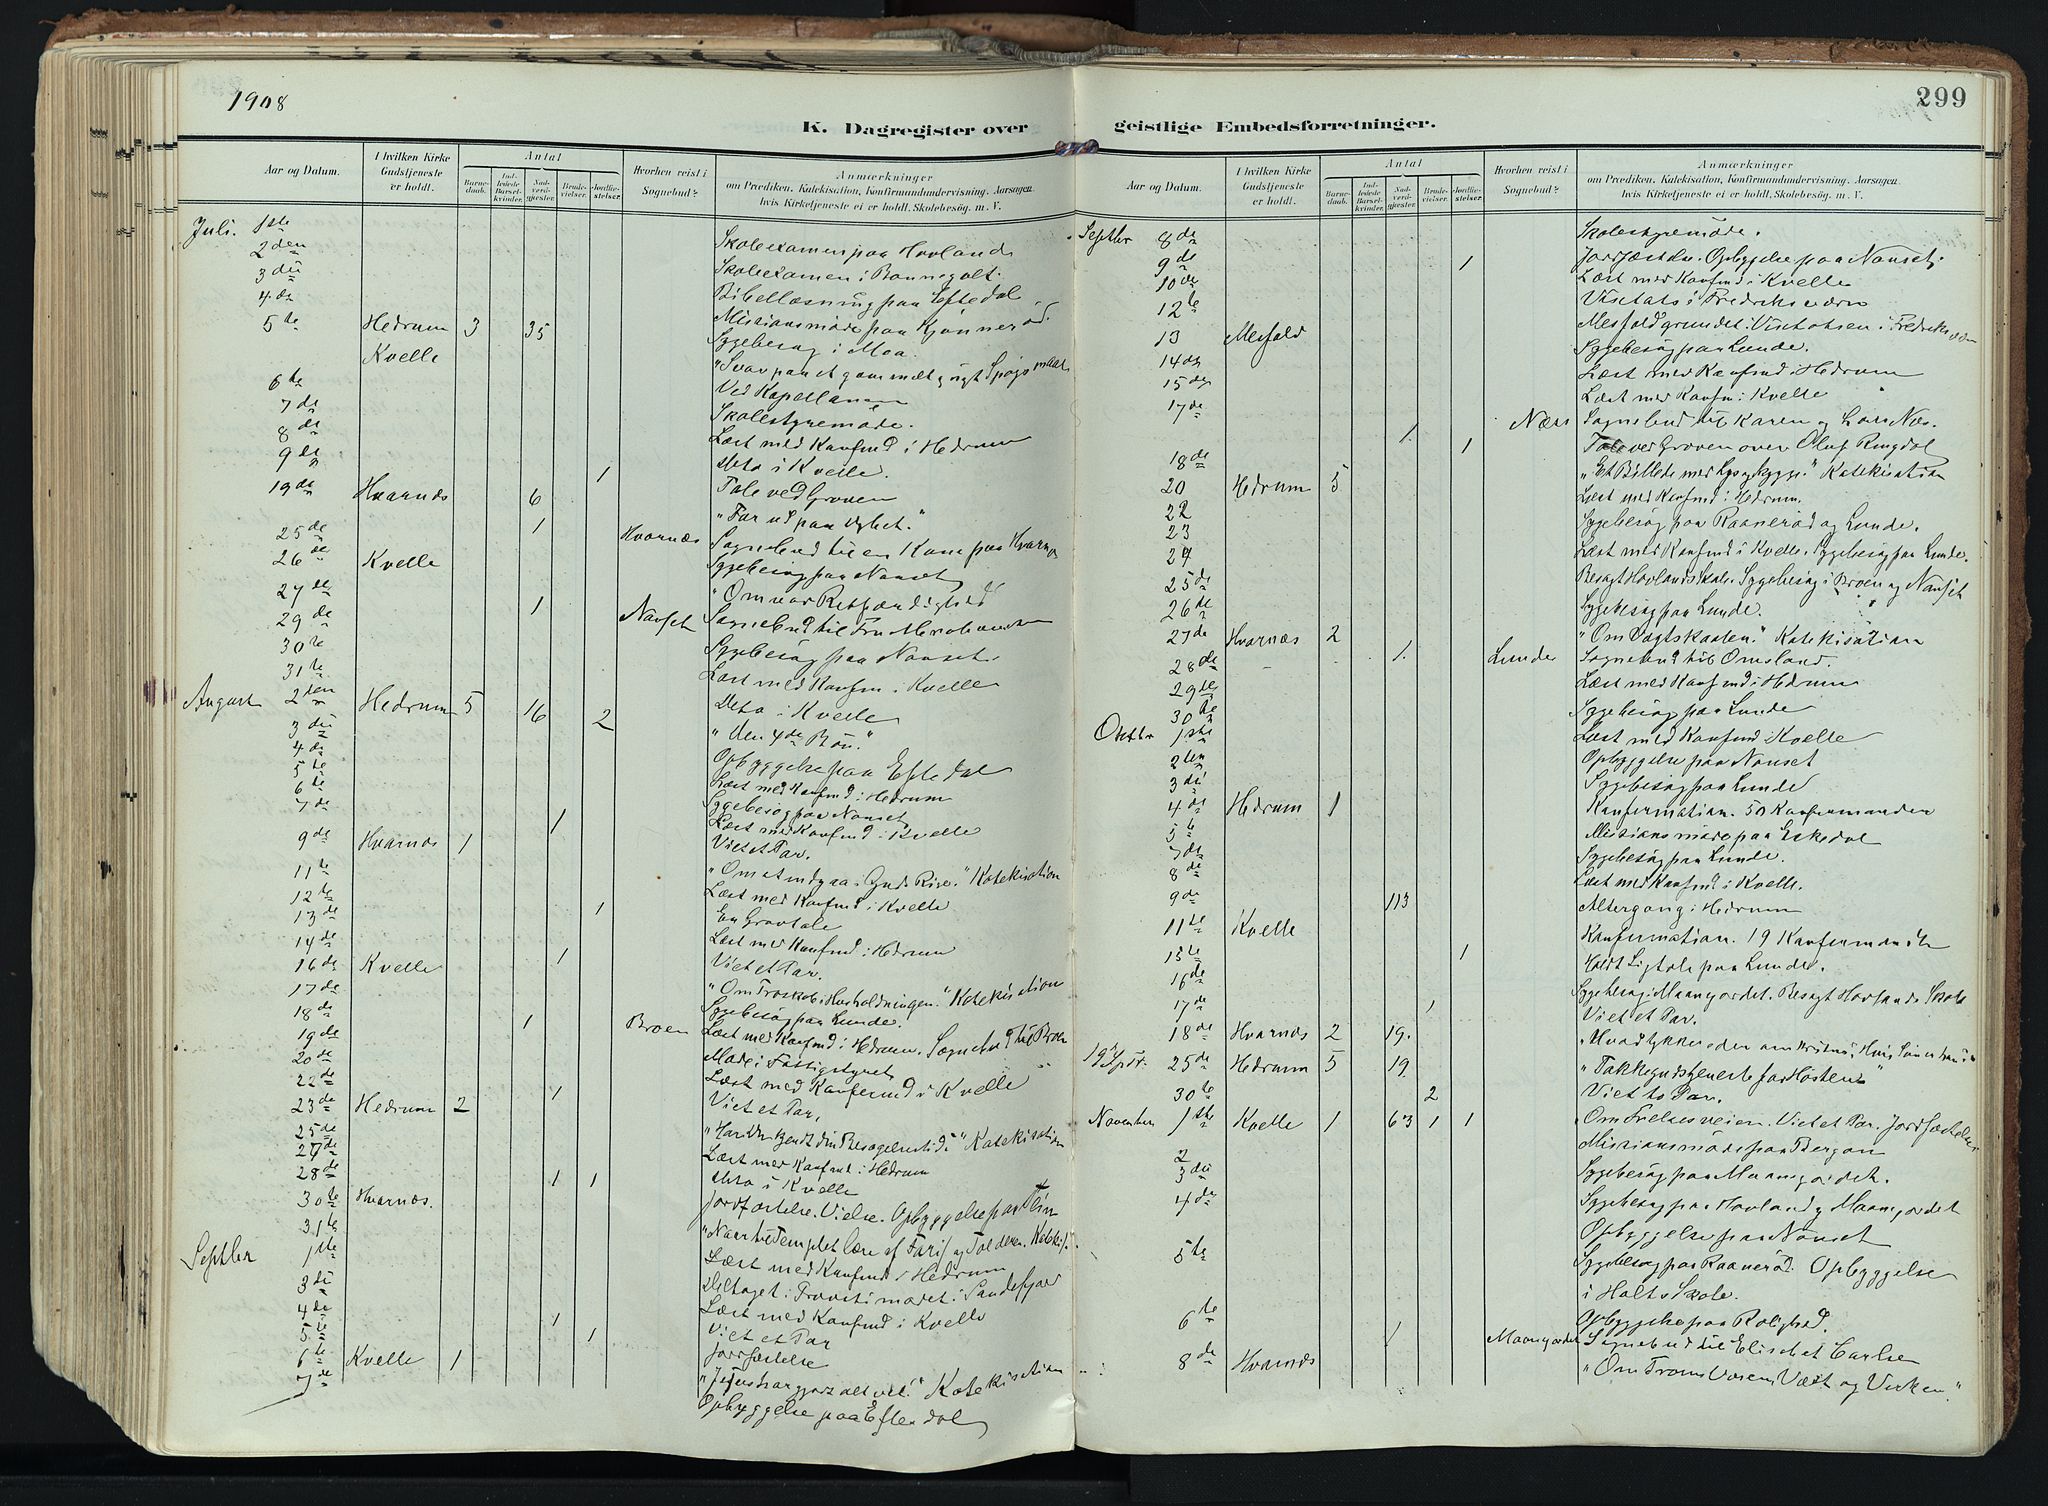 1908
299
K. Dagregister over geistlige Embedsforretninger.
Aar og Datum. I hvilken Kirke Gudstjeneste er holdt. Antal Barnedaab. Indledede Barselkvinder. Nadverdgjester. Brudevielser. Jordfæstelser. Hvorhen reist i Sognebud? Anmærkninger om Prædiken, Katekisation, Konfirmandundervisning, Aarsagen hvis Kirketjeneste ei er holdt, Skolebesøg m. V.
Juli. 1ste
2den Skoleexamen paa Hovland
3die Skoleexamen i
4de Bibellæsning paa Eftedal
5te Hedrum 3 35 Missionsmøde paa Kjønnerød
Sygebesøg i Moa.
Kvelle "Svar paa et gammelt og vigt Spøgsmaal
6te Ved Kapellanen
7de Skolestyremøde.
8de Læst med Konfmd i Hedrum
9de 1 dito i Kvelle.
Tale ved Graven
19de Hvarnæs 6 "Far ud paa dybet."
25de 1 Hvarnæs Sognebud til en Kone paa Hvarnæs
26de Kvelle Sygebesøg paa Nanset
"Om vor Retfærdighed
27de
29de 1 Nanset Sognebud til Fru
30te Sygebesøg paa Nanset.
31te Læst med Konfm i Kvelle
August 2den Hedrum 5 16 2 Dito i Kvelle
3die "Den 4de Bøn."
4de Opbyggelse paa Eftedal
5te Læst med Konfmd i Hedrum
6te Sygebesøg paa Nanset
7de 1 Læst med Konfmd i Kvelle
9de Hvarnæs 1 Viet et Par.
11te "Om at indgaa i Guds Rige." Katekisation
12te Læst med Konfmd i Kvelle
13de 1 En Gravtale
14de Læst med Konfmd i Hedrum
16de Kvelle 1 Viet et Par.
17de "Om Troskab i Husholdningen." Katekisation
18de Sygebesøg paa Lunde.
19de 1 Broen Læst med Konfmd i Hedrum. Sognebud til Broen
20de Møde i Fattigstyret
22de 1 Læst med Konfirmd i Kvelle
23de Hedrum 2 Viet et Par.
25de "Har du kjendt din Besøgelsestid." Katekisation
27de Læst med Konfmd i Hedrum
28de 1 1 dito i Kvelle
30te Hvarnæs. Jordfæstelse. Vielse. Opbyggelse paa
31te
Septbr 1ste Læst med Konfmd i Hedrum
3die Deltaget i Provstimødet i Sandefjord
4de 1 Læst med Konfmd i Kvelle
5te 1 Viet et Par
6te Kvelle 1 Jordfæstelse
7de "Jesus har gjort alt vel." Katekisation
Opbyggelse paa Eftedal
Aar og Datum. I hvilken Kirke Gudstjeneste er holdt. Antal Barnedaab. Indledede Barselkvinder. Nadverdgjester. Brudevielser. Jordfæstelser. Hvorhen reist i Sognebud? Anmærkninger om Prædiken, Katekisation, Konfirmandundervisning, Aarsagen hvis Kirketjeneste ei er holdt, Skolebesøg m. V.
Septbr 8de Skolestyremøde.
9de 1 Jordfæstelse. Opbyggelse paa Nanset
10de Læst med Konfmd i Kvelle
12te Visitats i Fredriksværn
13 Mesfald Mesfald grundet Visitatsen i Fredriksværn
14de Sygebesøg paa Lunde.
15de Læst med Konfmd i Hedrum
17de Læst med Konfm i Kvelle
1. Næss Sognebud til Karen og Lars Næs.
18de 1 Tale ved Graven over Oluf Ringdal
20 Hedrum 5 "Et Billede med Lys og Skygge." Katekisation
22 Læst med Konfmd i Hedrum.
23 Sygebesøg paa Raanerød og Lunde.
24 Læst med Konfmd i Kvelle. Sygebesøg paa Lunde.
25de Besøgt Hovlands Skole. Sygebesøg i Broen og Nanset
26de Sygebesøg paa Lunde.
27de Hvarnæs 2 "Om Vægtskaalen." Katekisation
28de 1. Lunde Sognebud til Omsland.
29de Læst med Konfmd i Hedrum
30te Sygebesøg paa Lunde
Octbr 1ste Læst med Konfmd i Kvelle
2den Opbyggelse paa Nanset
3die Sygebesøg paa Lunde
4de Hedrum 1 Konfirmation. 50 Konfirmander
5te Missionsmøde paa Eskedal
7de Sygebesøg paa Lunde.
8de Læst med Konfmd i Kvelle.
9de 113 Altergang i Hedrum
11te Kvelle Konfirmation. 19 Konfirmander
15te 1 Holdt Ligtale paa Lunde.
16de Sygebesøg i Maanejordet. Besøgt Hovlands Skole
17de 1 Viet et Par.
18de Hvarnæs 2 19.
25de Hedrum 5 19. "Takkegudstjeneste for Høsten"
30te 2 Viet to Par.
November 1ste Kvelle 1 63 1 1 "Om Frelsesveien. Viet et Par. Jordfæstelse
2 Missionsmøde paa Bergan
3die Sygebesøg paa Maanejordet.
4de Sygebesøg paa Hovland og Maanejordet
Opbyggelse paa Nanset
5te Sygebesøg paa Raanerød. Opbyggelse
i Holts Skole.
6te Opbyggelse paa Rolighed.
1 Maanejordet Sognebud til Elisabet Carlsen
8de Hvarnæs "Om Troens Væsen, Væxt og Virken."